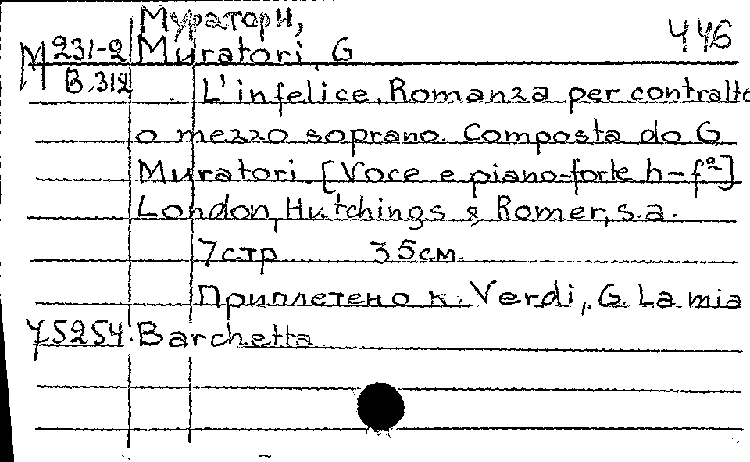 Муратори,
446
M 231-2 Muratori, G
B.312 L'infelice. Romanza per contralto
o mezzo soprano. Composta da G
Muratori. [Voce e piano-forte h-f²]
London, Hutchings & Romer, s.a.
7 стр 35 см.
Приплетено к: Verdi, G. La mia
75254. Barchetta